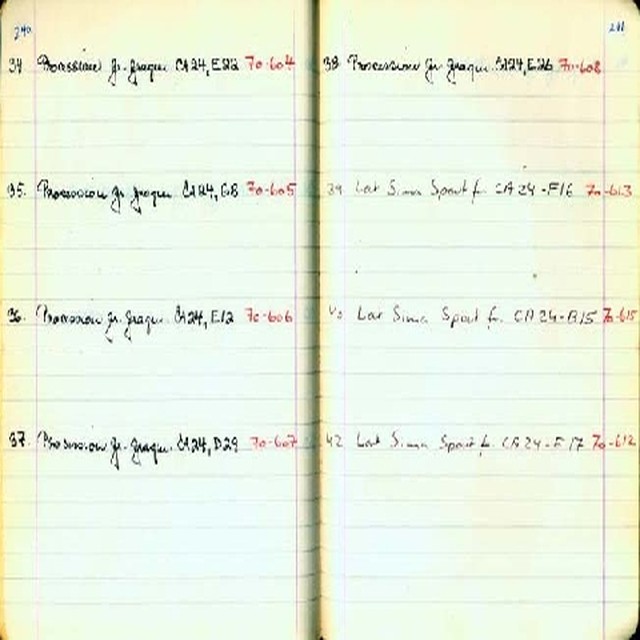 240
34 Procession fr. fragm. CA24, E22 70-604
35. Procession fr. fragm. CA24, G8 70-605
36. Procession fr. fragm. CA24, E12 70-606
37. Procession fr. fragm. CA24, D29 70-607
241
38 Procession fr. fragm. CA24, E26 70-608
39 Lat Sima Spout fr. CA24-F16 70-613
40 Lat Sima Spout fr. CA24-B15 70-615
42 Lat Sima Spout fr. CA24-F17 70-612